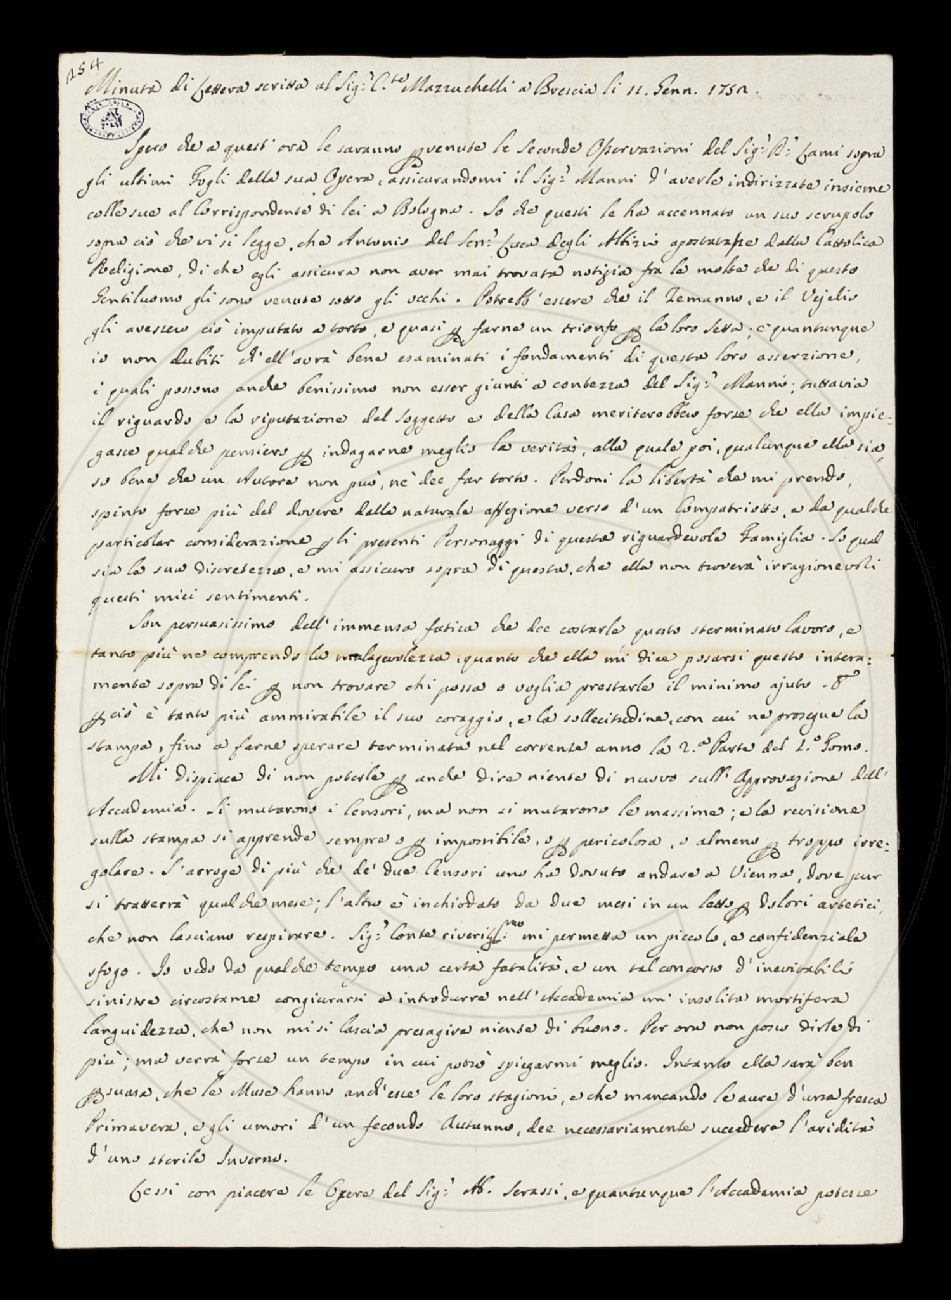 254
Minuta di Lettera scritta al Sig.r C.te Mazzuchelli a Brescia li 11. Genn. 1752.
Spero che a quest'ora le saranno pervenute le seconde Osservazioni del Sig.r D.r Lami sopra
gli ultimi Fogli della sua Opera, assicurandomi il Sig.r Manni d'averle indirizzate insieme
colle sue al Corrispondente di lei a Bologna. So che questi le ha accennato un suo scrupolo
sopra ciò che vi si legge, che Antonio del Sen.r Luca degli Albizi apostatasse dalla Cattolica
Religione, di che egli assicura non aver mai trovata notizia fra le molte che di questo
Gentiluomo gli sono venute sotto gli occhi. Potrebb'essere che il Zemanno, e il Vejelio
gli avessero ciò imputato a torto, e quasi per farne un trionfo per la loro setta; e quantunque
io non dubiti ch'ell'avrà bene esaminati i fondamenti di questa loro asserzione,
i quali possono anche benissimo non esser giunti a contezza del Sig.r Manni; tuttavia
il riguardo e la riputazione del soggetto e della Casa meriterebbero forse che ella impie-
gasse qualche pensiero per indagarne meglio la verità, alla quale poi, qualunque ella sia,
so bene che un Autore non può, nè dee far torto. Perdoni la libertà che mi prendo,
spinto forse più del dovere dalla naturale affezione verso d'un Compatriotto, e da qualche
particolar considerazione per li presenti Personaggi di questa riguardevole Famiglia. So qual
sia la sua discretezza, e mi assicuro sopra di questa, che ella non troverà irragionevoli
questi miei sentimenti.
Son persuasissimo dell'immensa fatica che dee costarle questo sterminato lavoro, e
tanto più ne comprendo la malagevolezza, quanto che ella mi dice posarsi questo intera-
mente sopra di lei per non trovare chi possa o voglia prestarle il minimo ajuto. E
perciò è tanto più ammirabile il suo coraggio, e la sollecitudine, con cui ne prosegue la
stampa, fino a farne sperare terminata nel corrente anno la 2.a Parte del 1.o Tomo.
Mi dispiace di non poterle per anche dire niente di nuovo sull'Approvazione dell'
Accademia. Si mutarono i Censori, ma non si mutarono le massime; e la recisione
sulla stampa si apprende sempre o per impossibile, o per pericolosa, o almeno per troppo irre-
golare. S'arroge di più che de' due Censori uno ha dovuto andare a Vienna, dove pur
si tratterrà qualche mese; l'altro è inchiodato da due mesi in un letto per dolori artetici,
che non lasciano respirare. Sig.r Conte mi permetta un piccolo, e confidenziale
sfogo. Io vedo da qualche tempo una certa fatalità, e un tal concorso d'inevitabili
sinistre circostanze congiurarsi a introdurre nell'Accademia un' insolita mortifera
languidezza, che non mi si lascia presagire niente di buono. Per ora non posso dirle di
più; ma verrà forse un tempo in cui potrò spiegarmi meglio. Intanto ella sarà ben
persuasa, che le Muse hanno anch'esse le loro stagioni, e che mancando le aure d'una fresca
Primavera, e gli umori d'un fecondo Autunno, dee necessariamente succedere l'aridità
d'uno sterile Inverno.
Lessi con piacere le Opere del Sig.r Ab. Serassi, e quantunque l'Accademia potesse